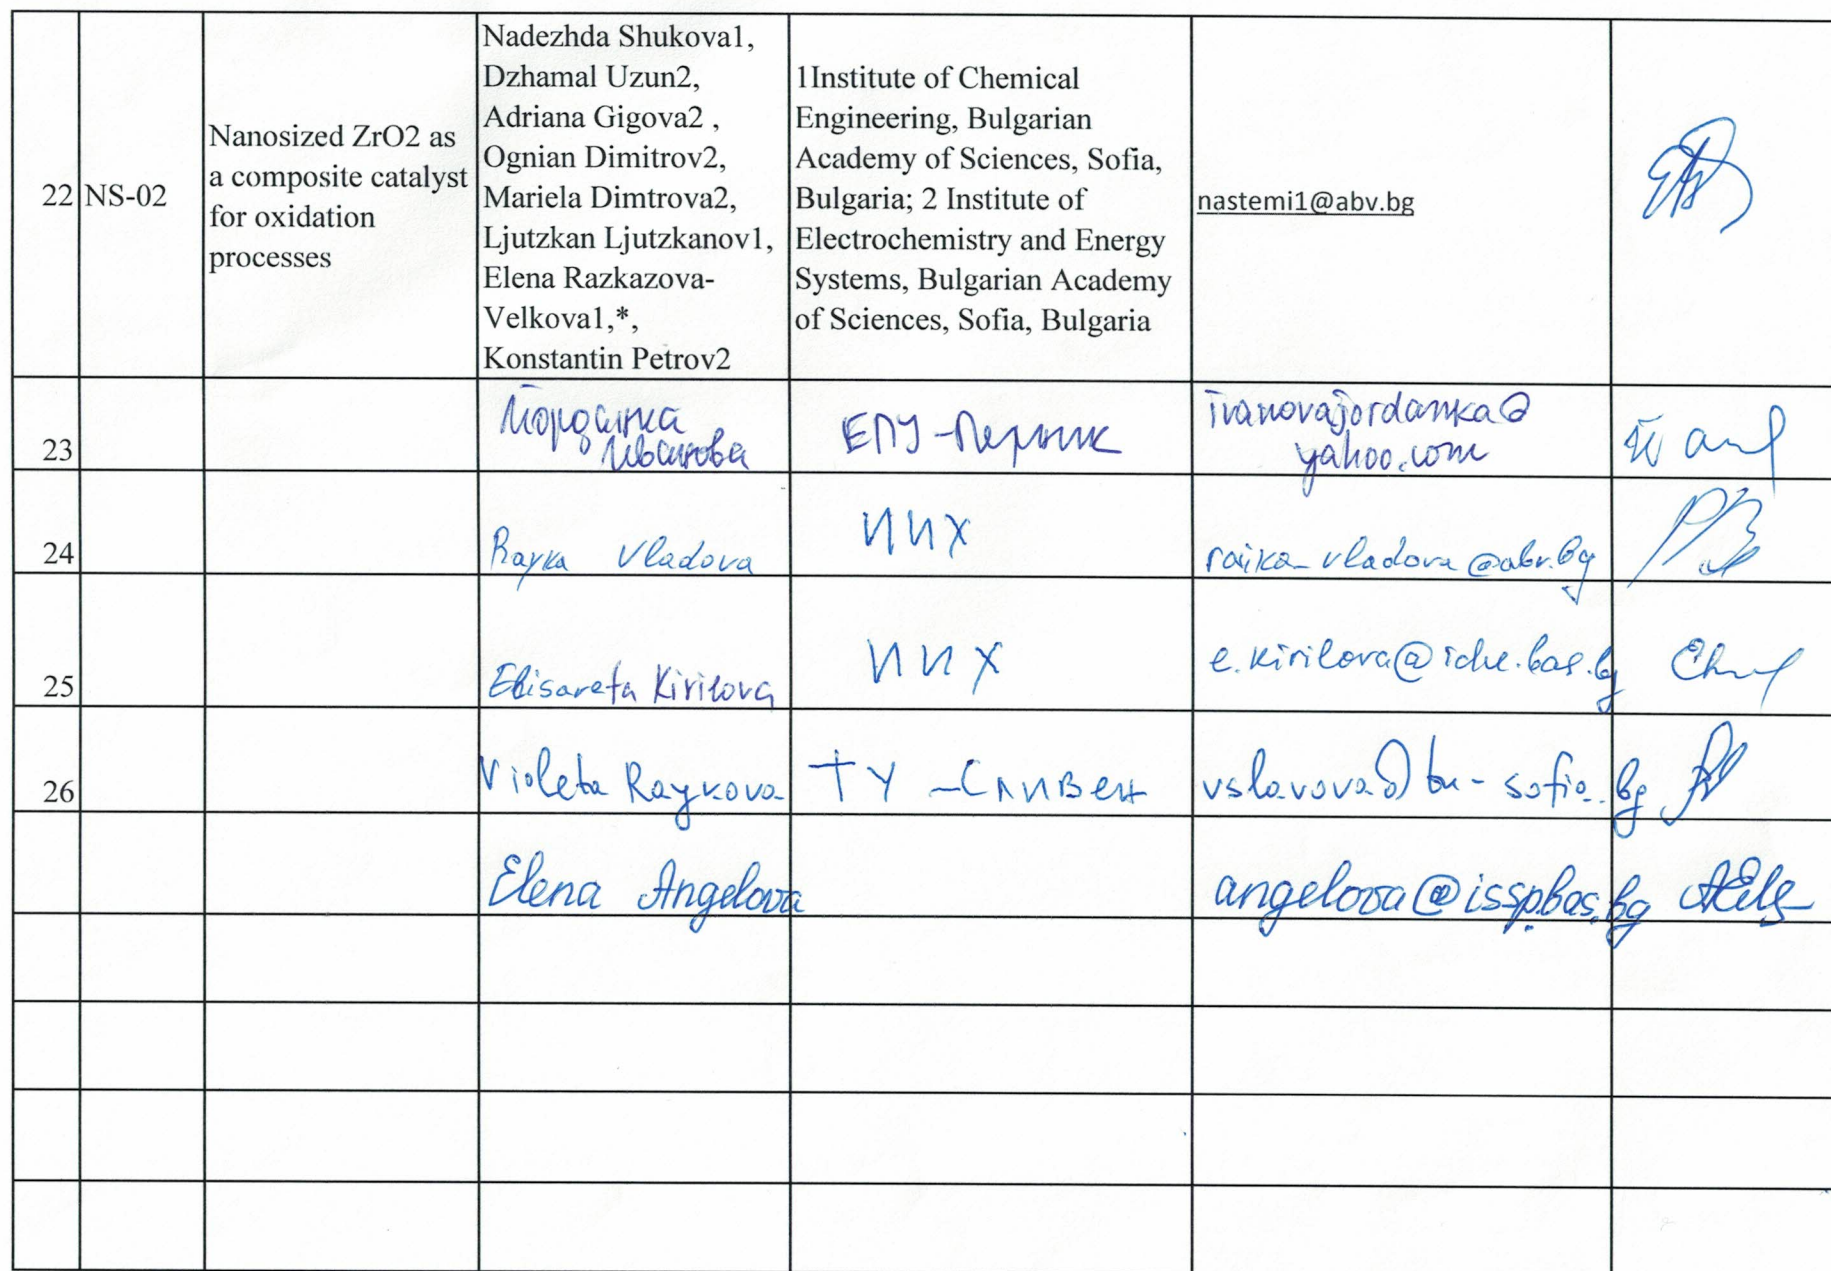 22 NS-02
Nanosized ZrO2 as
a composite catalyst
for oxidation
processes
Nadezhda Shukova1,
Dzhamal Uzun2,
Adriana Gigova2 ,
Ognian Dimitrov2,
Mariela Dimtrova2,
Ljutzkan Ljutzkanov1,
Elena Razkazova-
Velkova1,*,
Konstantin Petrov2
1Institute of Chemical
Engineering, Bulgarian
Academy of Sciences, Sofia,
Bulgaria; 2 Institute of
Electrochemistry and Energy
Systems, Bulgarian Academy
of Sciences, Sofia, Bulgaria
nastemi1@abv.bg
23
Йорданка
Иванова
ЕПУ-Перник
ivanovajordanka@
yahoo.com
24
Rayka Vladova
ИИХ
raika_vladova@abv.bg
25
Elisaveta Kirilova
ИИХ
e.kirilova@iche.bas.bg
26
Violeta Raykova
ТУ-Сливен
vslavova@tu-sofia.bg
Elena Angelova
angelova@issp.bas.bg